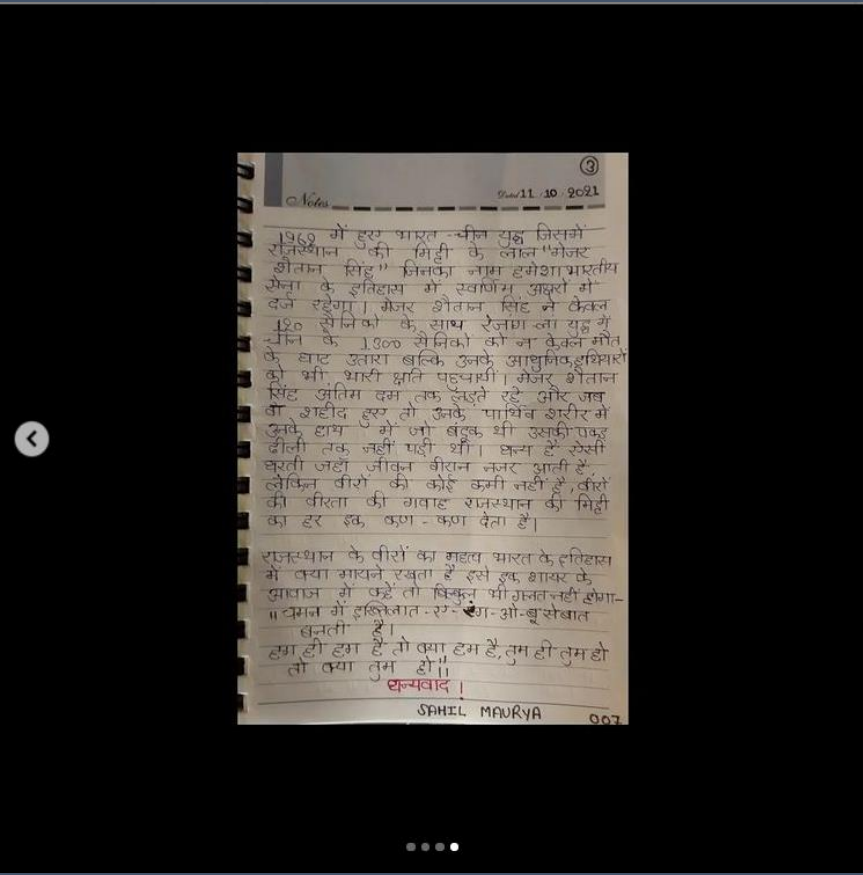 3
Notes
Date 11 . 10 . 2021
1962 में हुए भारत - चीन युद्ध जिसमें
राजस्थान की मिट्टी के लाल "मेजर
शैतान सिंह" जिनका नाम हमेशा भारतीय
सेना के इतिहास में स्वर्णिम अक्षरों में
दर्ज रहेगा। मेजर शैतान सिंह ने केवल
120 सैनिकों के साथ रेजांग-ला युद्ध में
चीन के 1,300 सैनिकों को न केवल मौत
के घाट उतारा बल्कि उनके आधुनिक हथियारों
को भी भारी क्षति पहुचायी। मेजर शैतान
सिंह अंतिम दम तक लड़ते रहे और जब
वो शहीद हुए तो उनके पार्थिव शरीर में
उनके हाथ में जो बंदूक थी उसकी पकड़
ढीली तक नहीं पड़ी थी। धन्य है ऐसी
धरती जहाँ जीवन वीरान नजर आती है,
लेकिन वीरों की कोई कमी नहीं है, वीरों
की वीरता की गवाह राजस्थान की मिट्टी
का हर इक कण - कण देता है।
राजस्थान के वीरों का महत्व भारत के इतिहास
में क्या मायने रखता है इसे इक शायर के
आवाज में कहें तो बिल्कुल भी गलत नहीं होगा-
"चमन में इख्तिलात-ए-रंग-ओ-बू से बात
बनती है।
हम ही हम है तो क्या हम है, तुम ही तुम हो
तो क्या तुम हो"॥
धन्यवाद !
SAHIL MAURYA
007